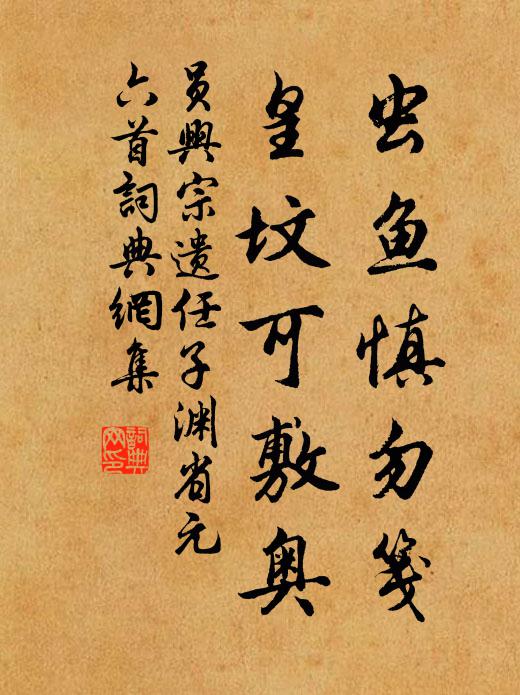 虫鱼慎勿笺
皇坟可敷奥
员興宗遗任子渊省元
六首詞典網集
詞典網印